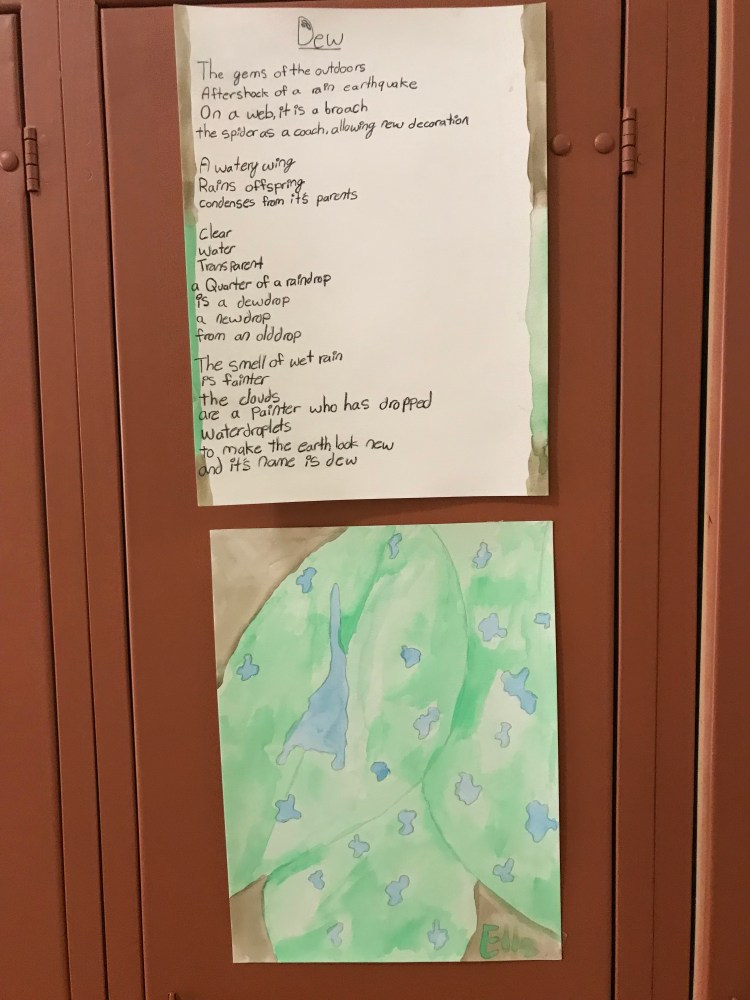 Dew
The gems of the outdoors
Aftershock of a rain earthquake
On a web, it is a broach
the spider as a coach, allowing new decoration
A watery wing
Rains offspring
condenses from it's parents
Clear
Water
Transparent
a Quarter of a raindrop
is a dewdrop
a newdrop
from an olddrop
The smell of wet rain
is fainter
the clouds
are a painter who has dropped
waterdroplets
to make the earth look new
and it's name is dew